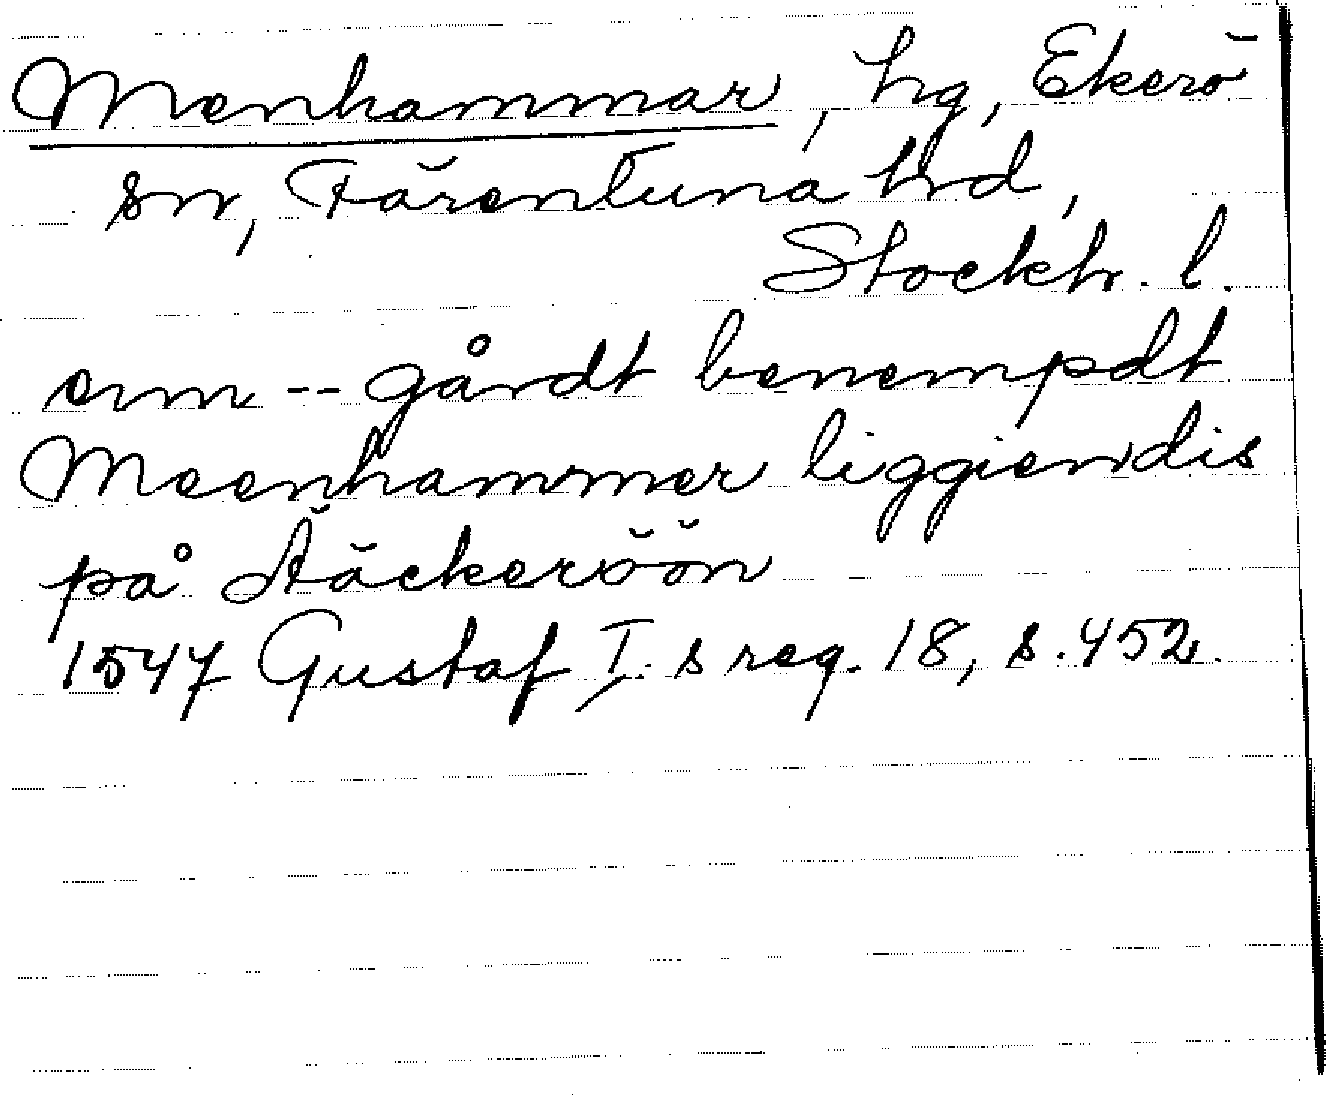 Menhammar, hg, Ekerö
sn, Färentuna hrd,
Stockh. l.
enn -- gårdt benempdt
Meenhammer liggiendis
på Ääckeröön
1547 Gustaf I. s reg. 18, s. 452.